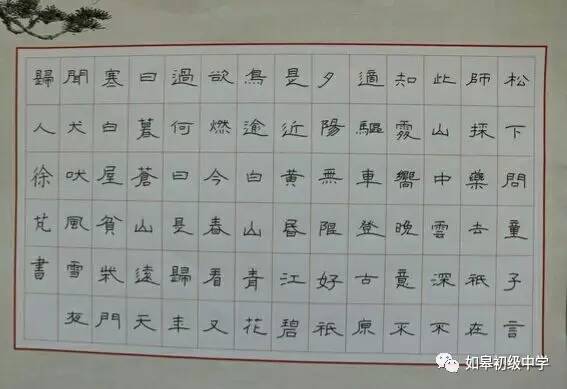 松下問童子言
師採藥去祇在
此山中雲深不
知處嚮晚意不
適驅車登古原
夕陽無限好祇
是近黃昏江碧
鳥逾白山青花
欲燃今春看又
過何日是歸年
日暮蒼山遠天
寒白屋貧柴門
聞犬吠風雪夜
歸人徐芃書
如皋初级中学